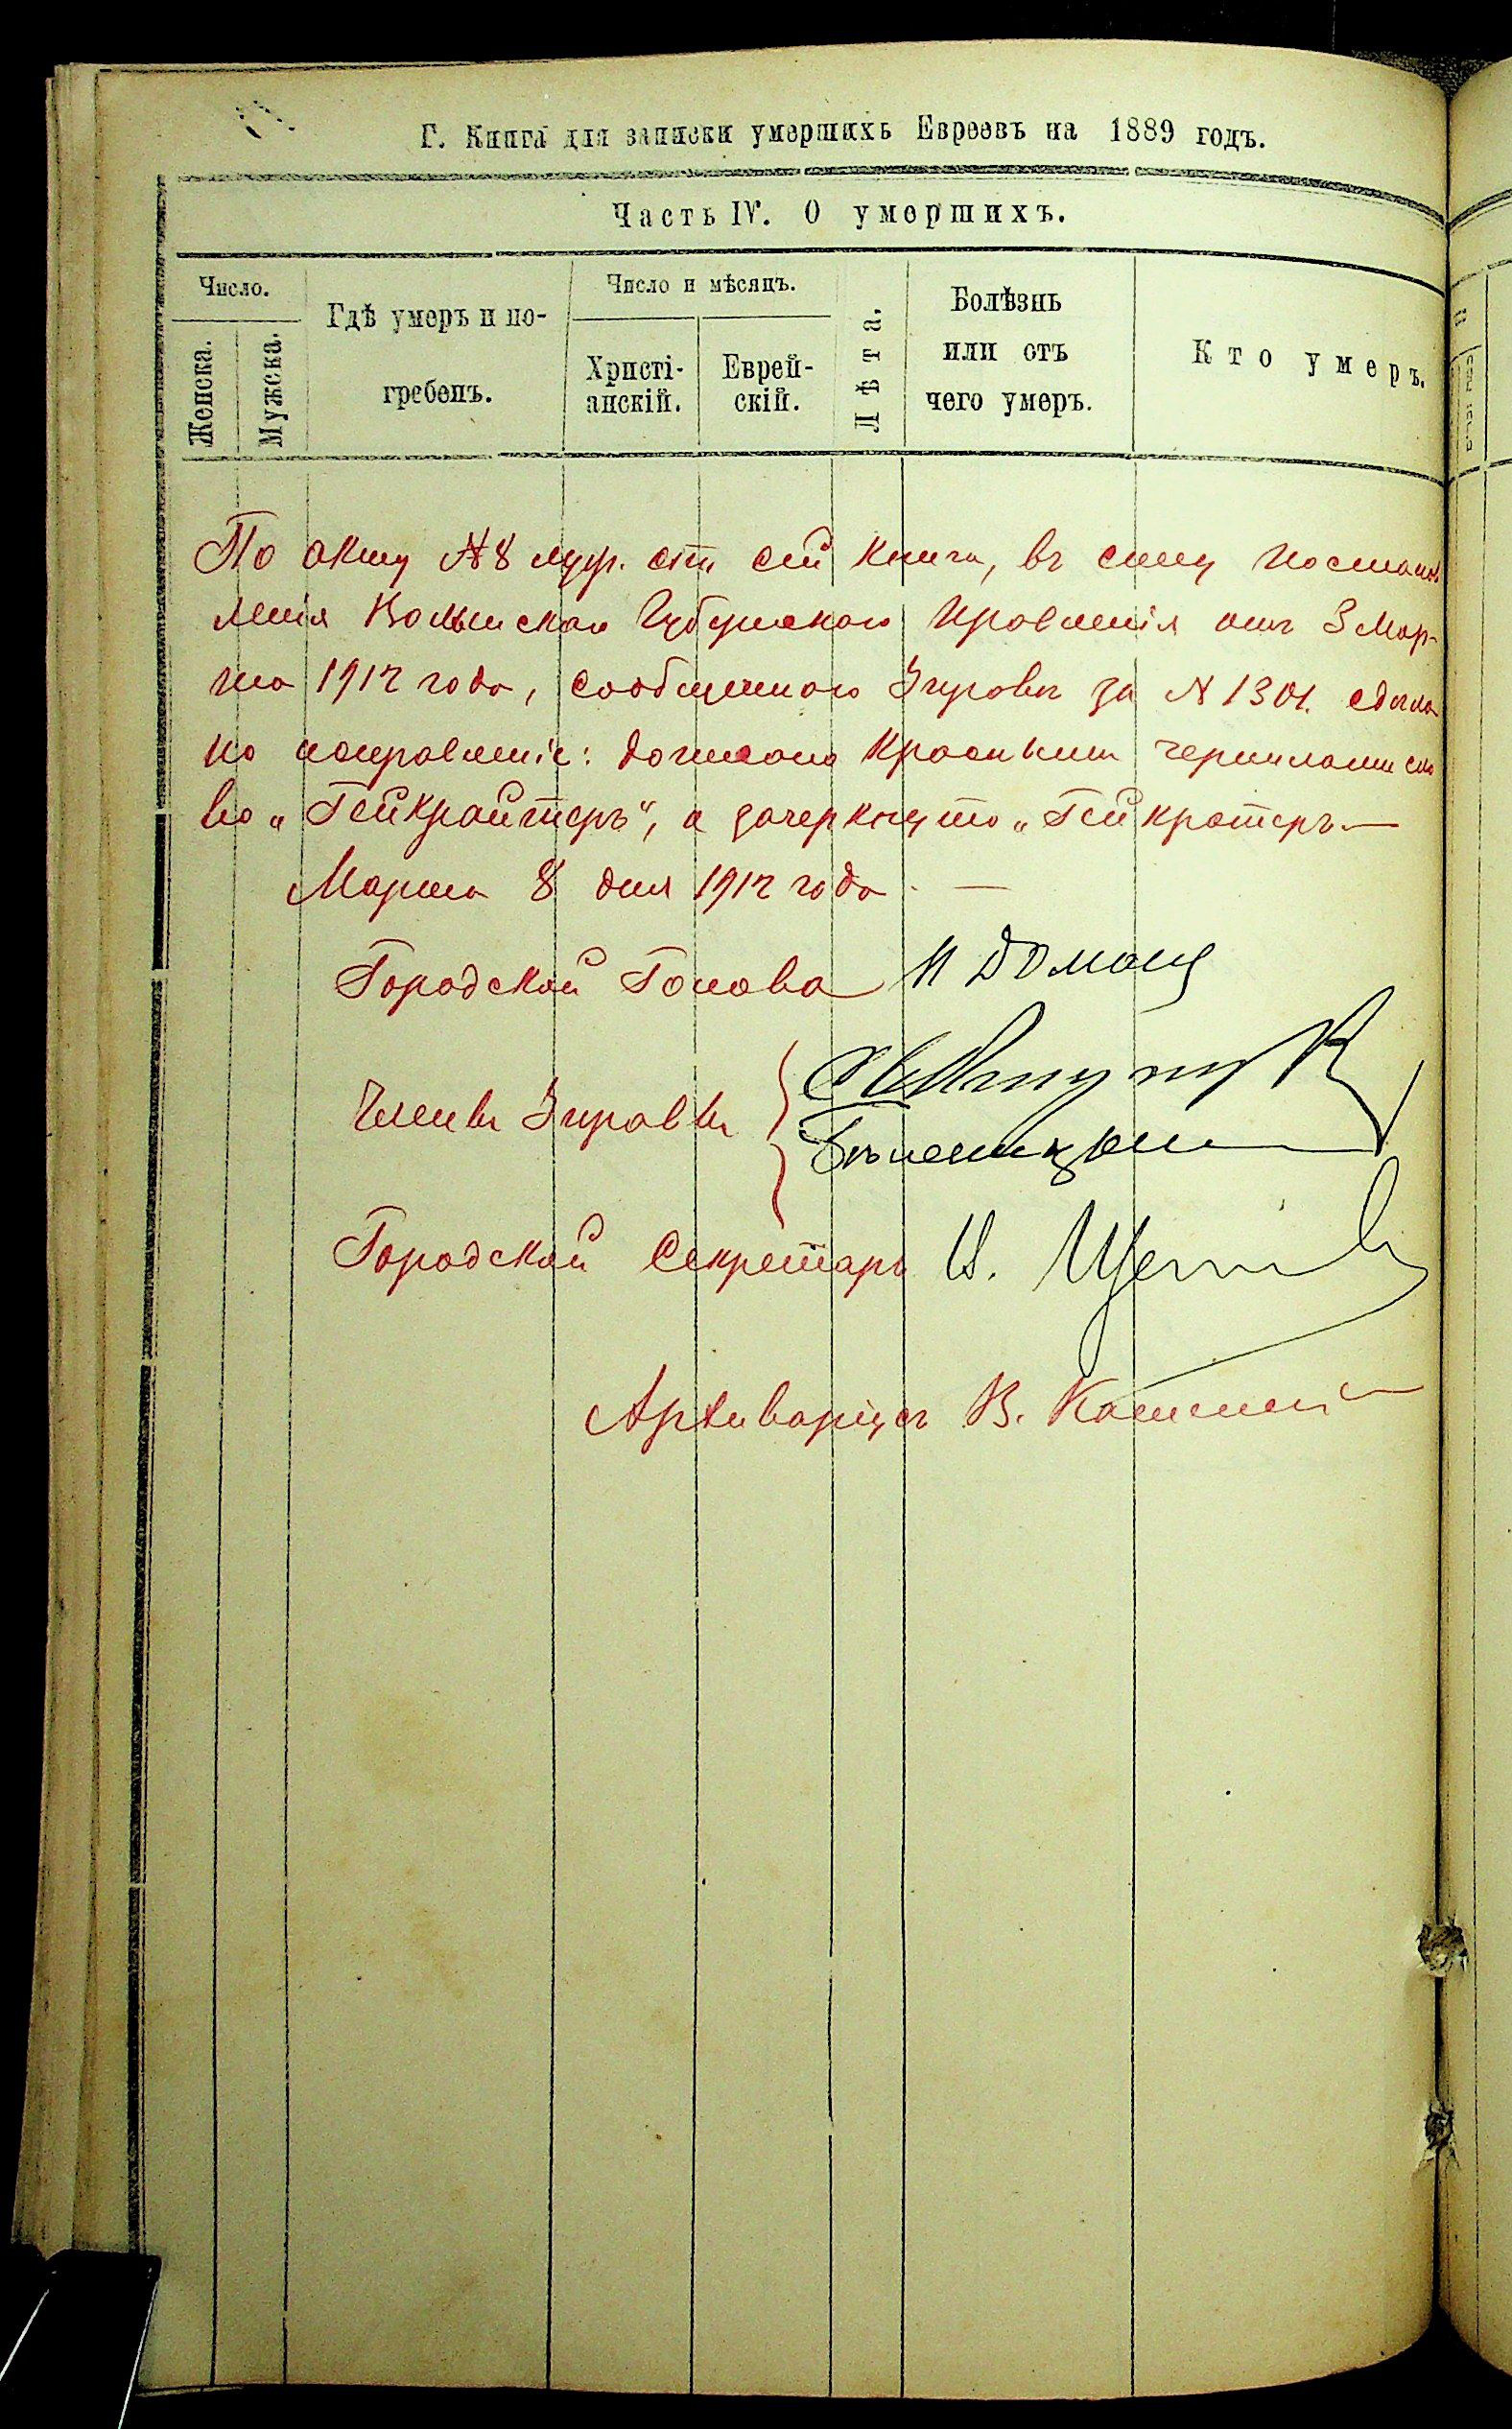 Г. Книга для записки умершихъ Евреевъ на 1889 годъ.
Часть IV. О умершихъ.
Число.
Женска.
Мужска.
Гдѣ умеръ и по-
гребенъ.
Число и мѣсяцъ.
Христі-
анскій.
Еврей-
скій.
Лѣта.
Болѣзнь
или отъ
чего умеръ.
Кто умеръ.
По акту № 8 муж. сей книги, въ силу постанов
ленія Волынскаго Губернскаго Правленія отъ 3 Мар-
та 1912 года, сообщеннаго Управѣ за № 1301. сдѣла
но исправленіе: дописано красными чернилами сло
во „Гейкрайтеръ“, а зачеркнуто „Гейкротеръ —
Марта 8 дня 1912 года. —
Городской Голова
Члены Управы
Городской Секретарь И.
Архиваріусъ В.